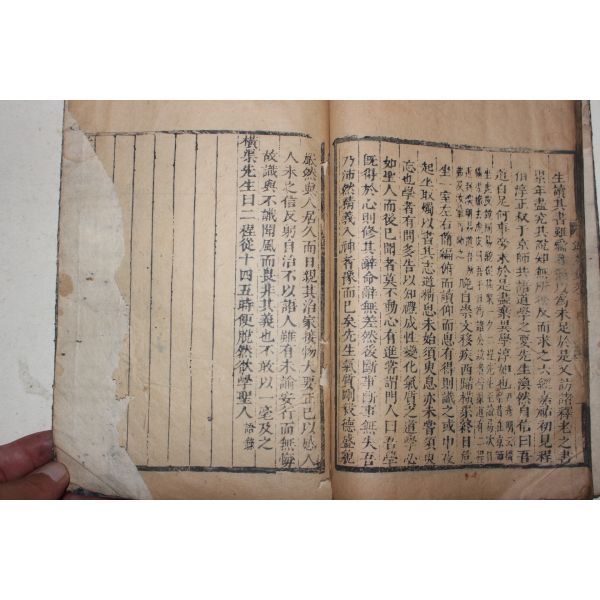 生讀其書雖以爲未足於是又訪諸釋老之書
累年盡究其說知無所得反而求之六經嘉祐初見程
伯淳正叔于京師共語道學之要先生渙然自信曰吾
道自足何事旁求於是盡棄異學淳如也尹彥明云橫渠
晩自崇文移疾西歸橫渠終日危
坐一室左右簡編俯而讀仰而思有得則識之或中夜
起坐取燭以書其志道精思未始須臾息亦未嘗須臾
忘也學者有問多告以知禮成性變化氣質之道學必
如聖人而後已聞者莫不動心有進嘗謂門人曰吾學
旣得於心則修其辭命辭無差然後斷事斷事無失吾
乃沛然精義入神者豫而已矣先生氣質剛毅德盛貌
嚴然與人居久而日親其治家接物大要正己以感人
人未之信反躬自治不以語人雖有未諭安行而無悔
故識與不識聞風而畏非其義也不敢以一毫及之
橫渠先生曰二程從十四五時便脫然欲學聖人語錄